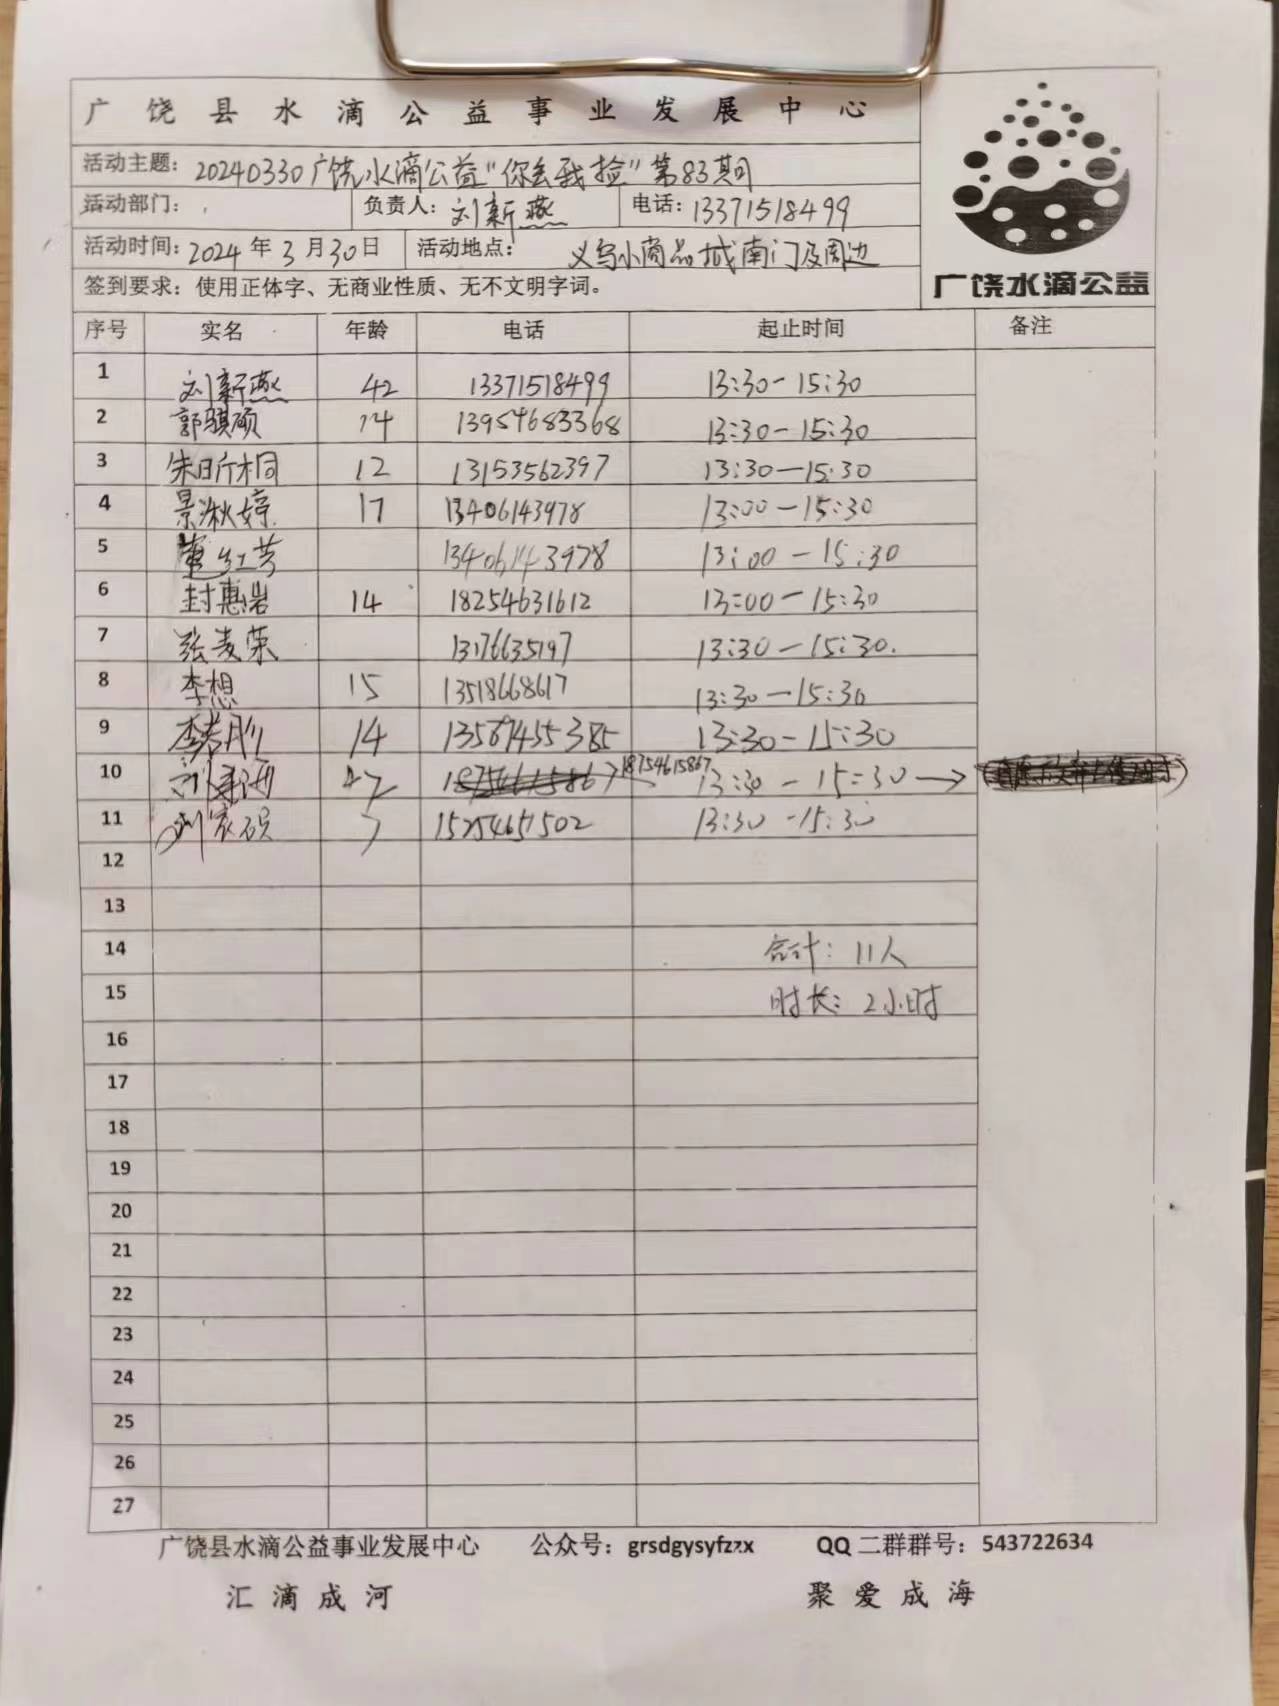 广饶县水滴公益事业发展中心
活动主题：20240330广饶水滴公益"你丢我捡"第83期
活动部门： 负责人：刘新燕 电话：13371518499
活动时间：2024年3月30日 活动地点：义乌小商品城南门及周边
签到要求：使用正体字、无商业性质、无不文明字词。
广饶水滴公益
序号 实名 年龄 电话 起止时间 备注
1 刘新燕 42 13371518499 13:30-15:30
2 郭骐硕 14 13954683368 13:30-15:30
3 朱昕桐 12 13153562397 13:30-15:30
4 景湫婷 17 13406143978 13:00-15:30
5 13406143978 13:00-15:30
6 封惠岩 14 18254631612 13:00-15:30
7 张麦荣 13176635197 13:30-15:30.
8 李想 15 13518668617 13:30-15:30
9 14 13561455385 13:30-15:30
10 18754615867 13:30-15:30→
11 刘家硕 7 15254651502 13:30-15:30
12
13
14 合计：11人
15 时长：2小时
16
17
18
19
20
21
22
23
24
25
26
27
广饶县水滴公益事业发展中心 公众号：grsdgysyfzzx QQ二群群号：543722634
汇滴成河 聚爱成海